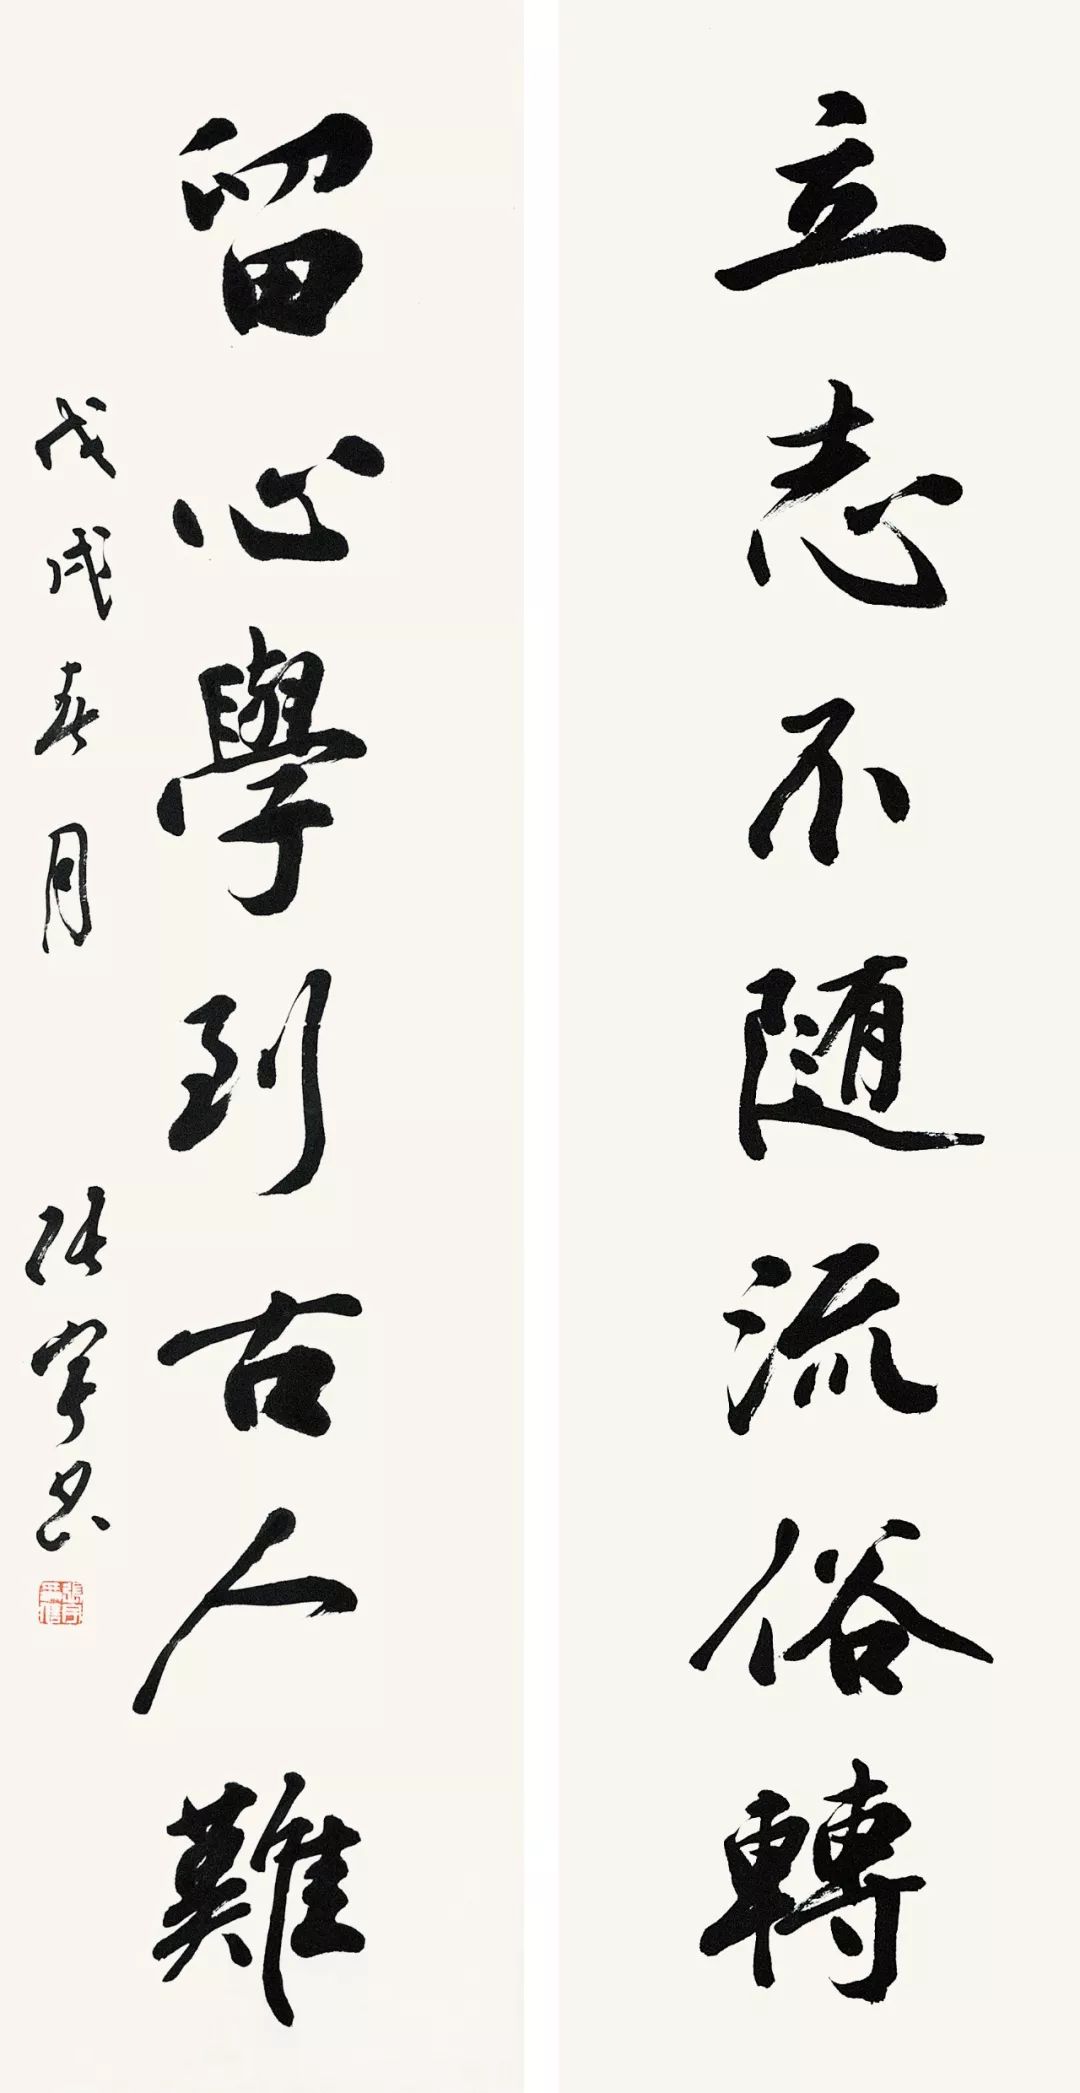 立志不随流俗轉
留心學到古人難
戊戌春月